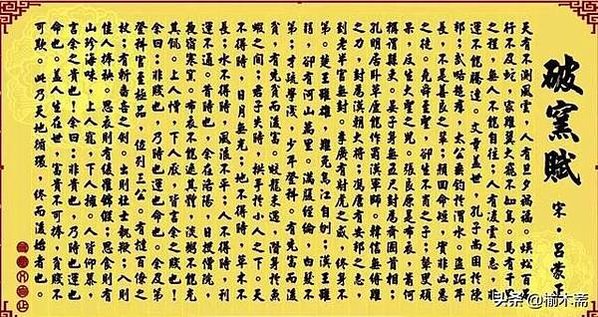 破窯賦
宋·呂蒙正
天有不測風雲，人有旦夕禍福。蜈蚣百足，
行不及蛇；家雞翼大，飛不如鳥。馬有千里
之程，無人不能自往；人有凌雲之志，非
運不能騰達。文章蓋世，孔子尚困於陳
邦；武略超群，太公垂釣於渭水。盜跖年
長，不是善良之輩；顏回命短，實非凶惡
之徒。堯舜至聖，卻生不肖之子；瞽叟頑
呆，反生大聖之兒。張良原是布衣，蕭何
稱謂縣吏。晏子身無五尺，封為齊國首相；
孔明居臥草廬，能作蜀漢軍師。韓信無縛雞
之力，封為漢朝大將；馮唐有安邦之志，
到老半官無封。李廣有射虎之威，終身不
第。楚王雖雄，難免烏江自刎；漢王雖
弱，卻有河山萬里。滿腹經綸，白髮不
第；才疏學淺，少年登科。有先富而後
貧，有先貧而後富。蛟龍未遇，潛身於魚
蝦之間；君子失時，拱手於小人之下。天
不得時，日月無光；地不得時，草木不
長；水不得時，風浪不平；人不得時，利
運不通。昔時也，余在洛陽，日投僧院，
夜宿寒窯。布衣不能遮其體，淡粥不能充
其饑。上人憎，下人厭，皆言余之賤也！
余曰：非賤也，乃時也運也命也。余及第
登科，官至極品，位列三公。有撻百僚之
杖，有斬鄙吝之劍。出則壯士執鞭，入則
佳人捧秧。思衣則有綾羅錦緞，思食則有
山珍海味。上人寵，下人擁。人皆仰慕，
言余之貴也！余曰：非貴也，乃時也運也
命也。蓋人生在世，富貴不可捧，貧賤不
可欺。此乃天地循環，終而復始者也。
头条 @榆木斋